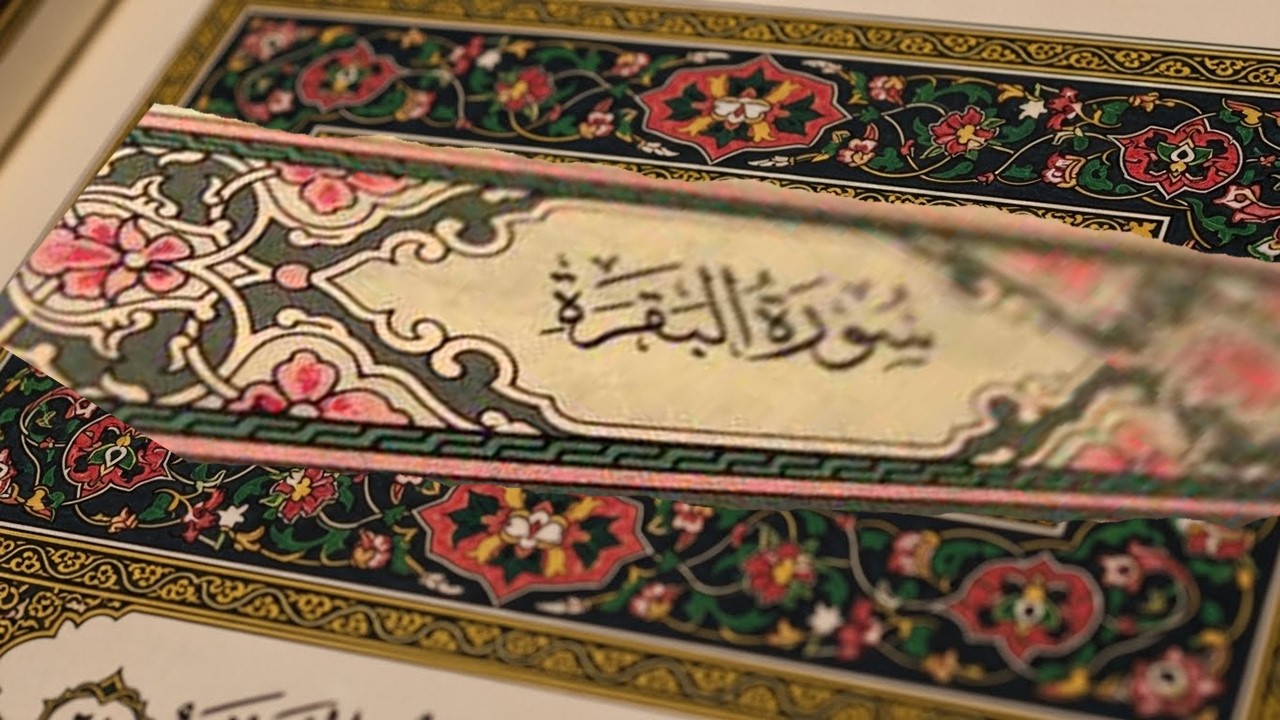 سُوْرَةُ الْبَقَرَةِ